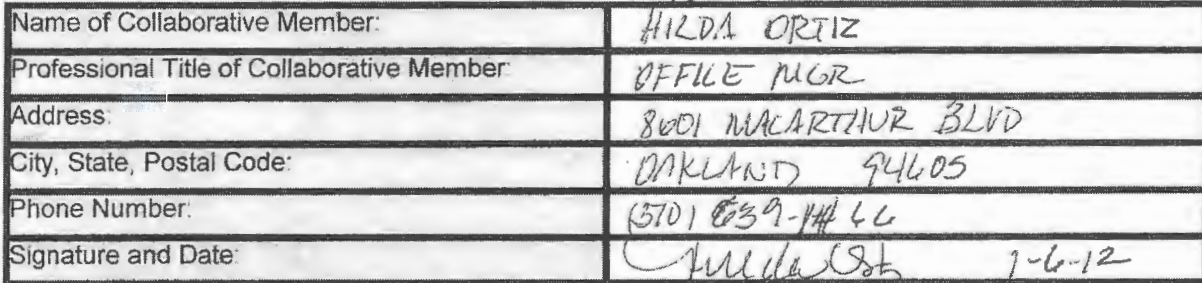 Name of Collaborative Member: HILDA ORTIZ
Professional Title of Collaborative Member: OFFICE MGR
Address: 8601 MACARTHUR BLVD
City, State, Postal Code: OAKLAND 94605
Phone Number: (510) 639-
Signature and Date: 1-6-12